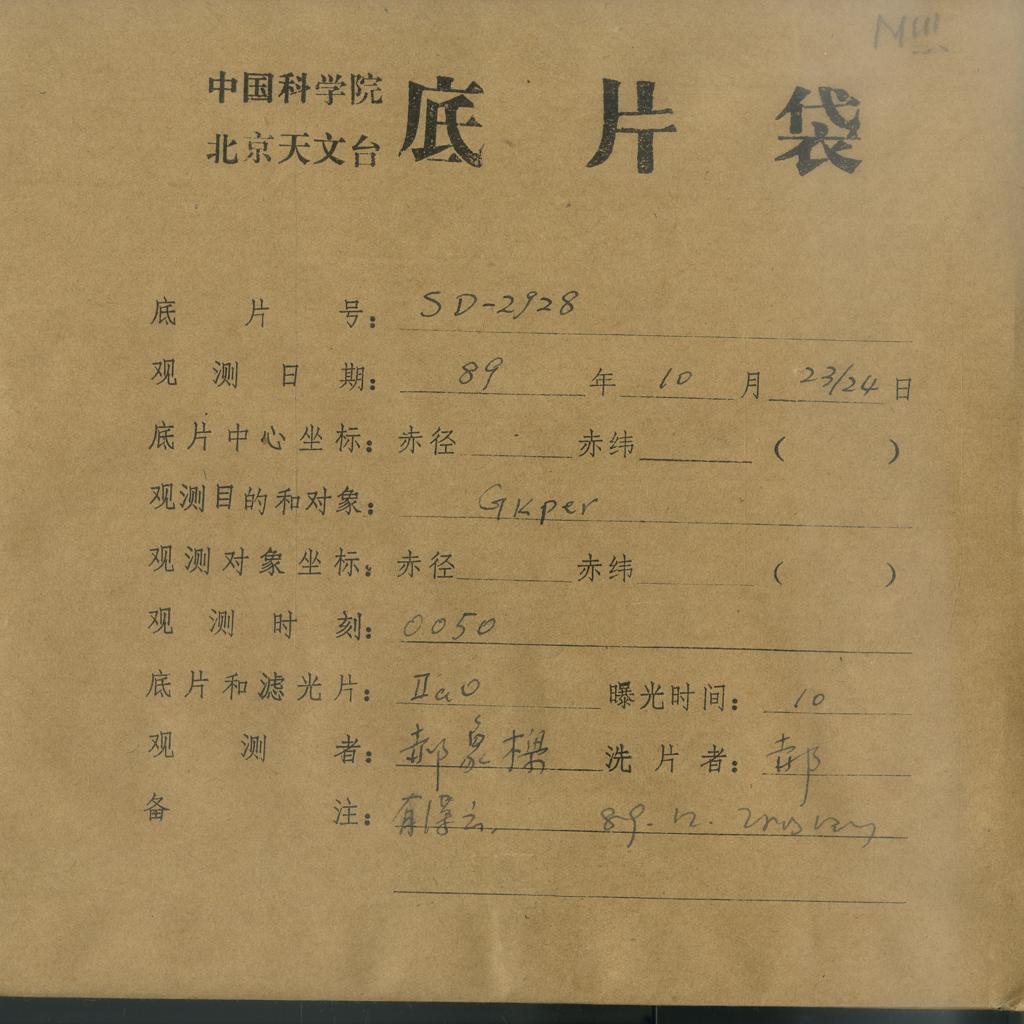 中国科学院
北京天文台
底片袋
底片号： SD-2928
观测日期： 89 年 10 月 23/24 日
底片中心坐标：赤径 赤纬 （ ）
观测目的和对象： GKper
观测对象坐标：赤径 赤纬 （ ）
观测时刻： 0050
底片和滤光片： IIaO 曝光时间： 10
观测者： 郝象樑 洗片者： 郝
备注： 有薄云, 89.12.